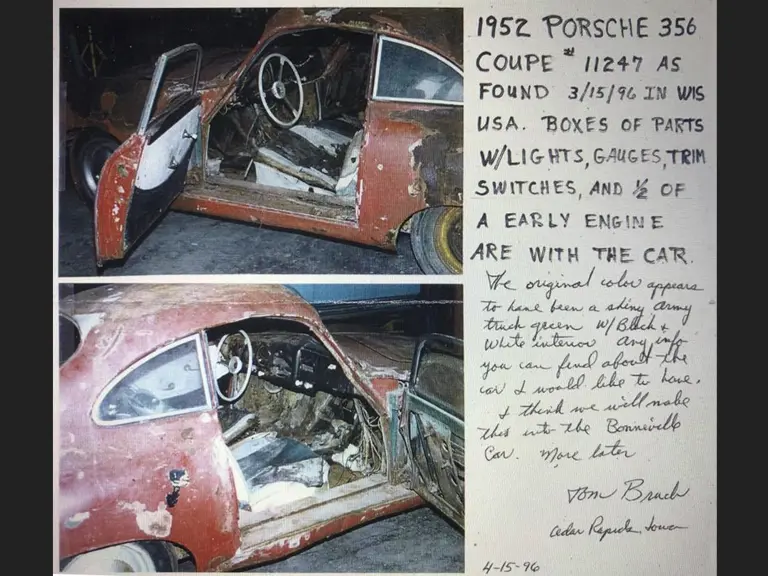 1952 PORSCHE 356
COUPE # 11247 AS
FOUND 3/15/96 IN WIS
USA. BOXES OF PARTS
W/LIGHTS, GAUGES, TRIM
SWITCHES, AND ½ OF
A EARLY ENGINE
ARE WITH THE CAR.
The original color appears
to have been a shiny army
truck green w/Black &
White interior any info
you can find about the
car I would like to have.
I think we will make
this into the Bonneville
Car. More later
Tom Bruch
Cedar Rapids, Iowa
4-15-96